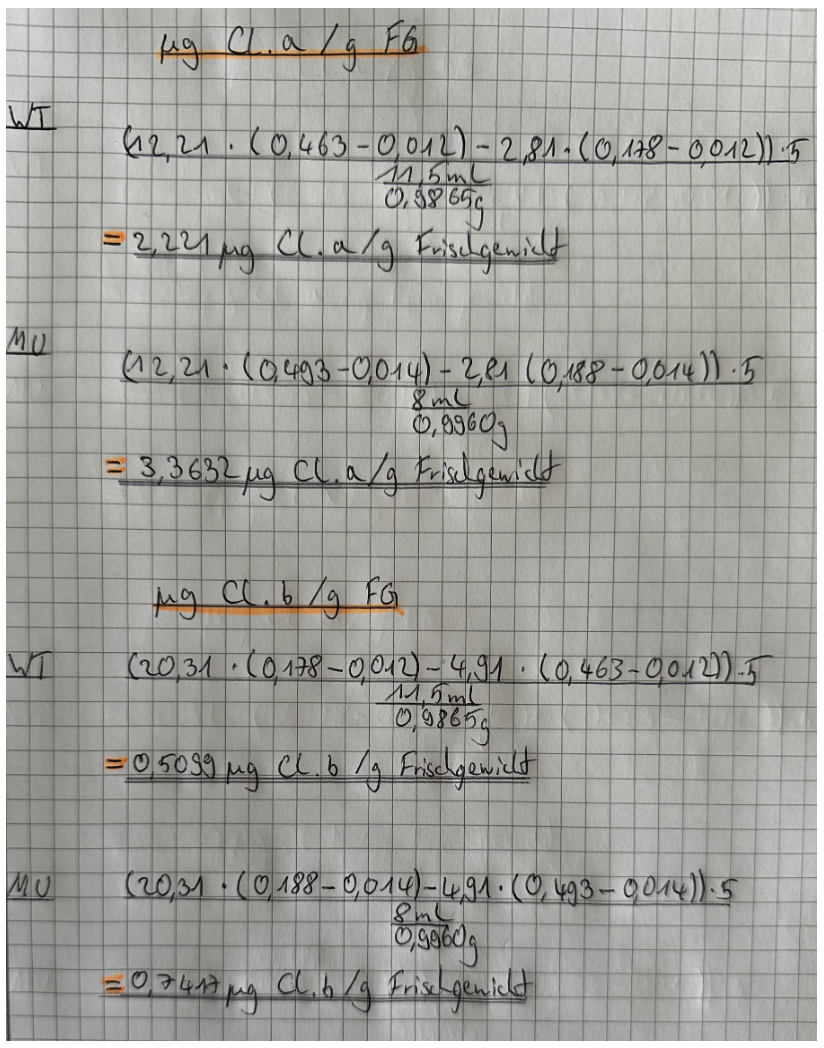 µg Cl. a / g FG
WT
(12,21 · (0,463 - 0,012) - 2,81 · (0,178 - 0,012)) · 5
11,5 ml
0,9865g
= 2,221 µg Cl. a/g Frischgewicht
MU
(12,21 · (0,493 - 0,014) - 2,81 (0,188 - 0,014)) · 5
8 ml
0,9960g
= 3,3632 µg Cl. a/g Frischgewicht
µg Cl. b / g FG
WT
(20,31 · (0,178 - 0,012) - 4,91 · (0,463 - 0,012)) · 5
11,5 ml
0,9865g
= 0,5099 µg Cl. b /g Frischgewicht
MU
(20,31 · (0,188 - 0,014) - 4,91 · (0,493 - 0,014)) · 5
8 ml
0,9960g
= 0,7417 µg Cl. b /g Frischgewicht